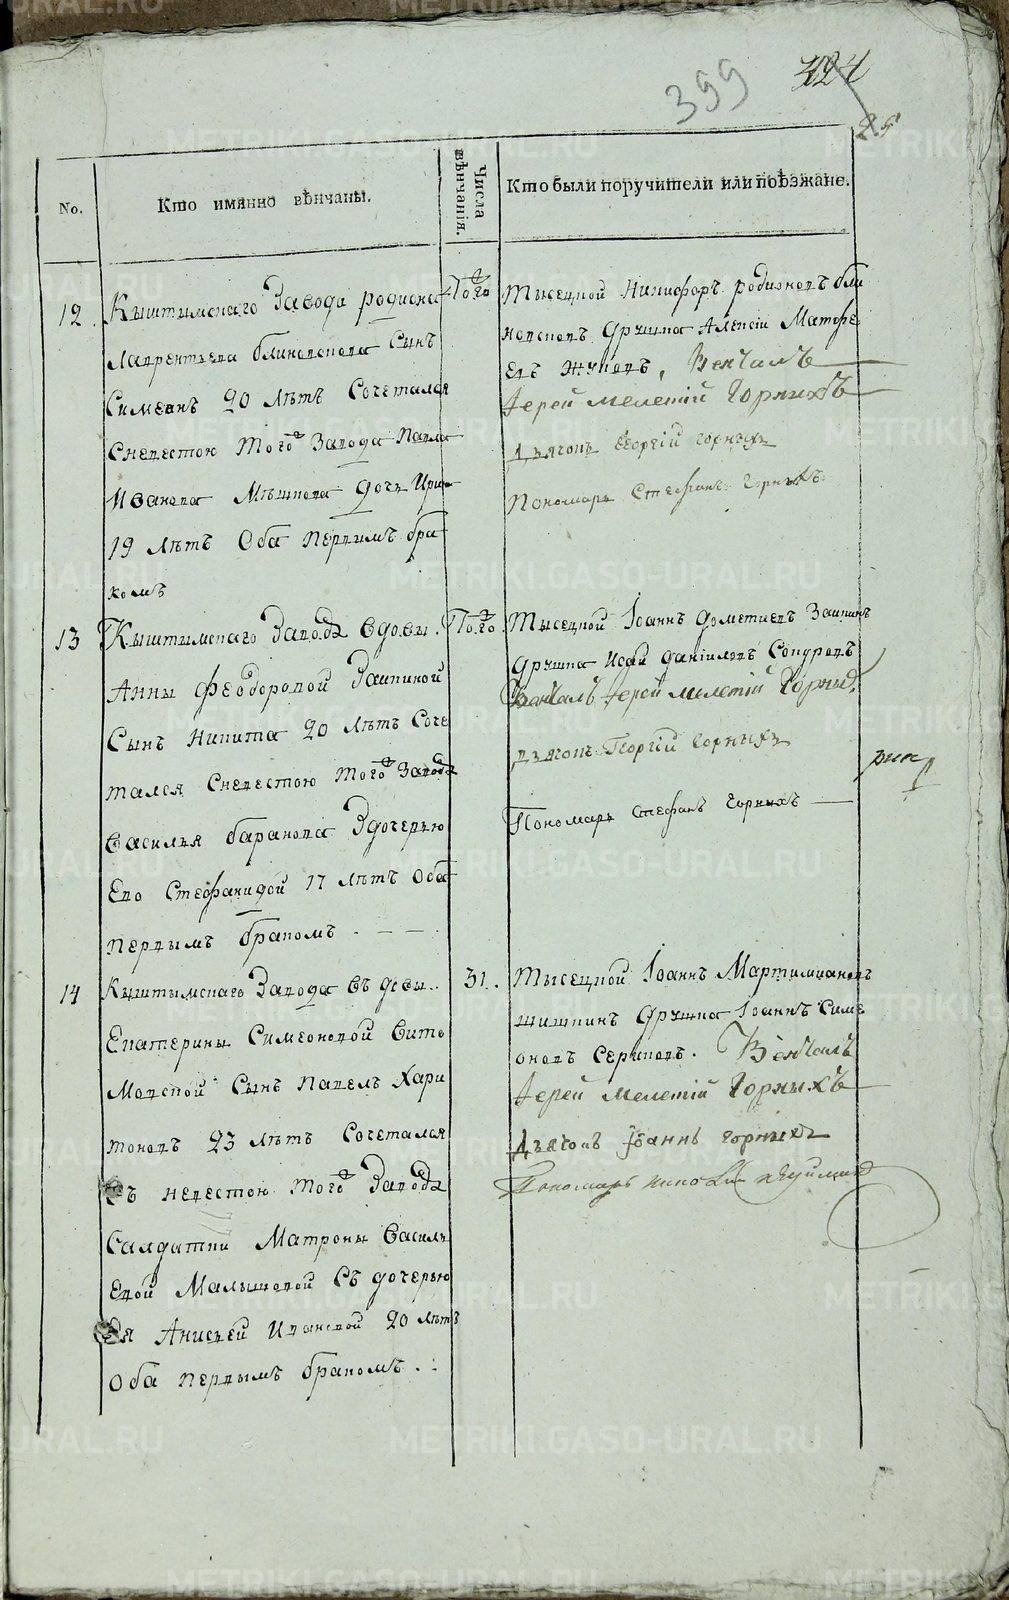 399
424
25
No.
Кто имянно вѣнчаны.
Числа вѣнчанія.
Кто были поручители или поѣзжане.
12.
Кыштымскаго Завода родиона
Лаврентьева блиновскова Сынъ
Симеонъ 20 лѣтъ Сочетался
Сневестою Того Завода Павла
Иванова Мѣшкова дочь Ири
19 лѣтъ Оба первымъ бра
комъ
Того
Тысецкой Никифоръ родионовъ бли
новсковъ дружка Алексѣй Матфе
евъ жуковъ, Венчалъ
Іерей мелетій Горныхъ
дьячокъ Георгій горныхъ
Пономарь Стефанъ горныхъ
13
Кыштымскаго Завода Вдовы
Анны Феодоровой Заикиной
Сынъ Никита 20 лѣтъ Соче
тался Сневестою Того Завода
Василья баранова Здочерью
Ево Стефанидой 17 лѣтъ Оба
первымъ бракомъ . — —
Того.
Тысецкой Іоаннъ дометиевъ Заикинъ
дружка Исай даніиловъ Сопуровъ
Венчалъ Іерей мелетій Горныхъ
дьячокъ Георгій горныхъ
Пономарь стефанъ горныхъ —
14
Кыштымскаго Завода Въдовы..
Екатерины Симеоновой Вить
Мовской Сынъ Павелъ Хари
тоновъ 23 лѣтъ Сочетался
Съ невестою Того Завода
Салдатки Матроны Василь
евой Малышовой Съ дочерью
Ея Анисьей Ивановой 20 лѣтъ
Оба первымъ бракомъ . .
31.
Тысецкой Іоаннъ Мартимиановъ
шишкинъ дружка Іоаннъ Симе
оновъ Сериковъ. Венчалъ
Іерей мелетій Горныхъ
Дьячокъ Іоаннъ горныхъ
Пономарь
METRIKI.GASO-URAL.RU